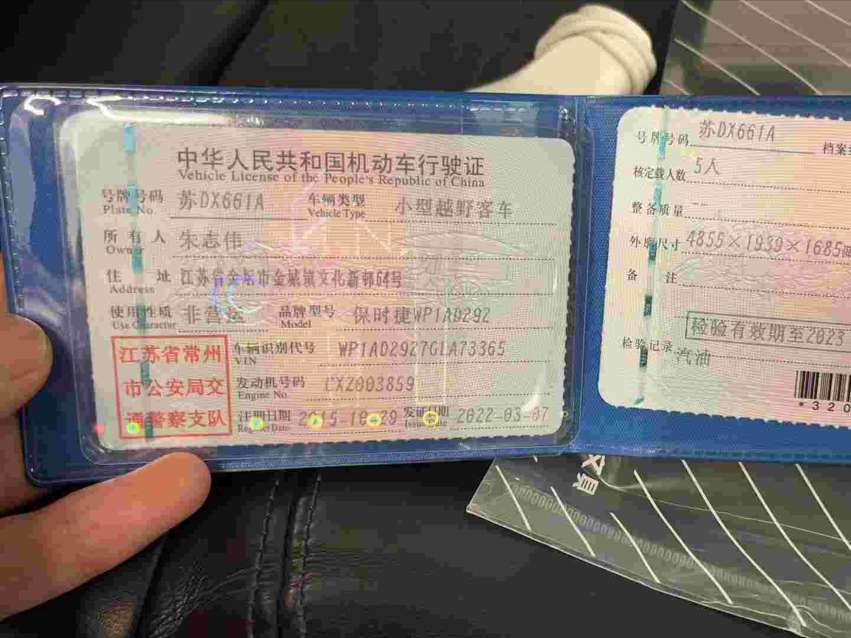 中华人民共和国机动车行驶证
Vehicle License of the People's Republic of China
号牌号码 苏DX661A 车辆类型 小型越野客车
Plate No. Vehicle Type
所有人 朱志伟
Owner
住址 江苏省金坛市金城镇文化新邨64号
Address
使用性质 非营运 品牌型号 保时捷WP1AD292
Use Character Model
江苏省常州
市公安局交
通警察支队
车辆识别代号 WP1AD2927GLA73365
VIN
发动机号码 CXZ003859
Engine No.
注册日期 2015-10-29 发证日期 2022-03-07
Register Date Issue Date
号牌号码 苏DX661A 档案
核定载人数 5人
整备质量 --
外廓尺寸 4855×1939×1685
备注
检验有效期至2023
检验记录 汽油
*320